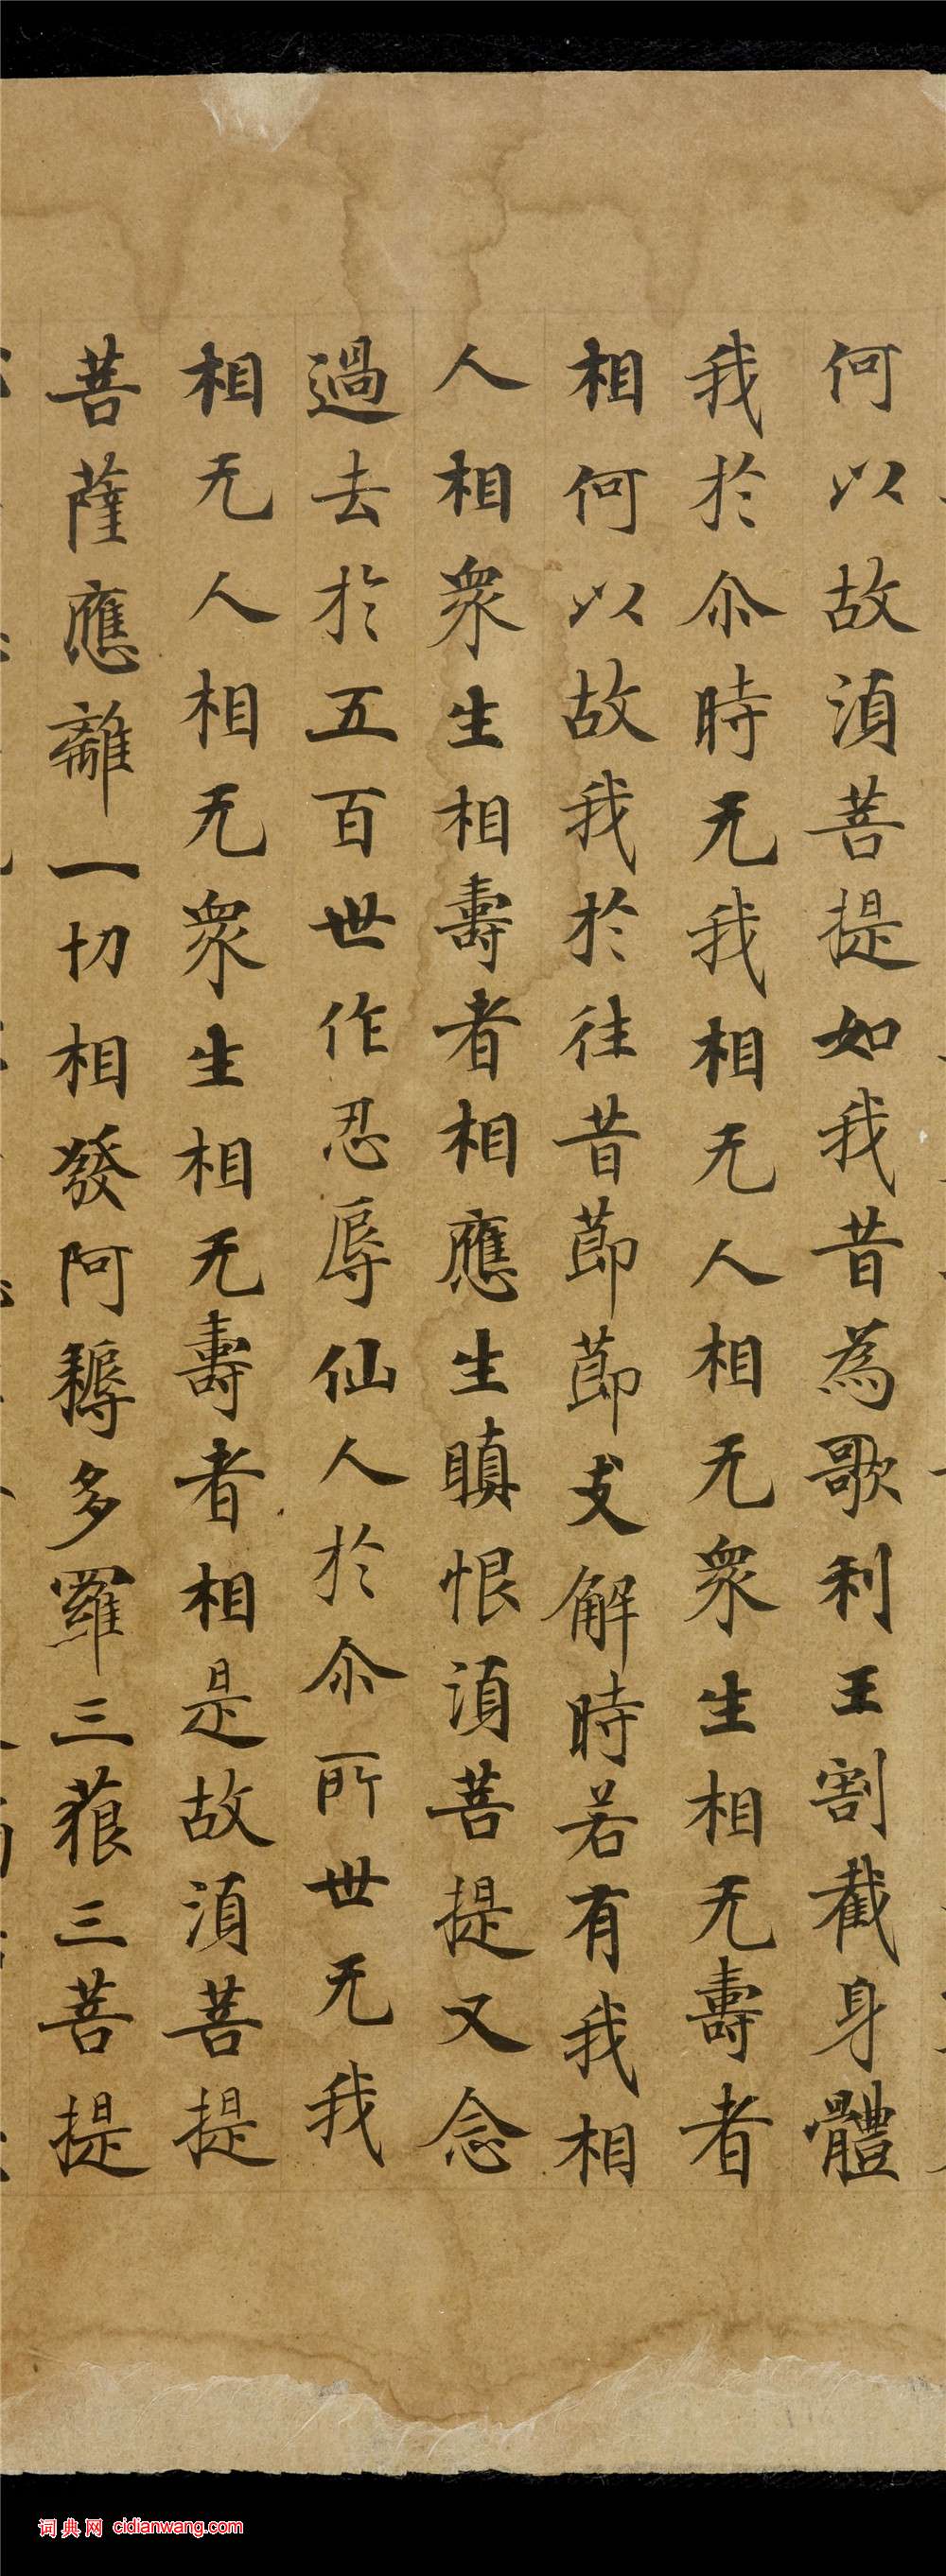 何以故湏菩提如我昔為歌利王割截身體
我於尒時无我相无人相无衆生相无壽者
相何以故我於往昔節節支解時若有我相
人相衆生相壽者相應生瞋恨湏菩提又念
過去於五百世作忍辱仙人於尒所世无我
相无人相无衆生相无壽者相是故湏菩提
菩薩應離一切相發阿耨多羅三藐三菩提
词典网 cidianwang.com